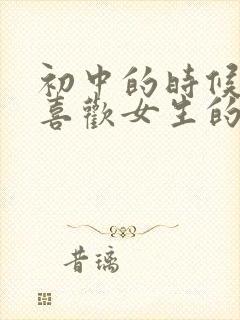 初中的時候
喜歡女生的
昔璃